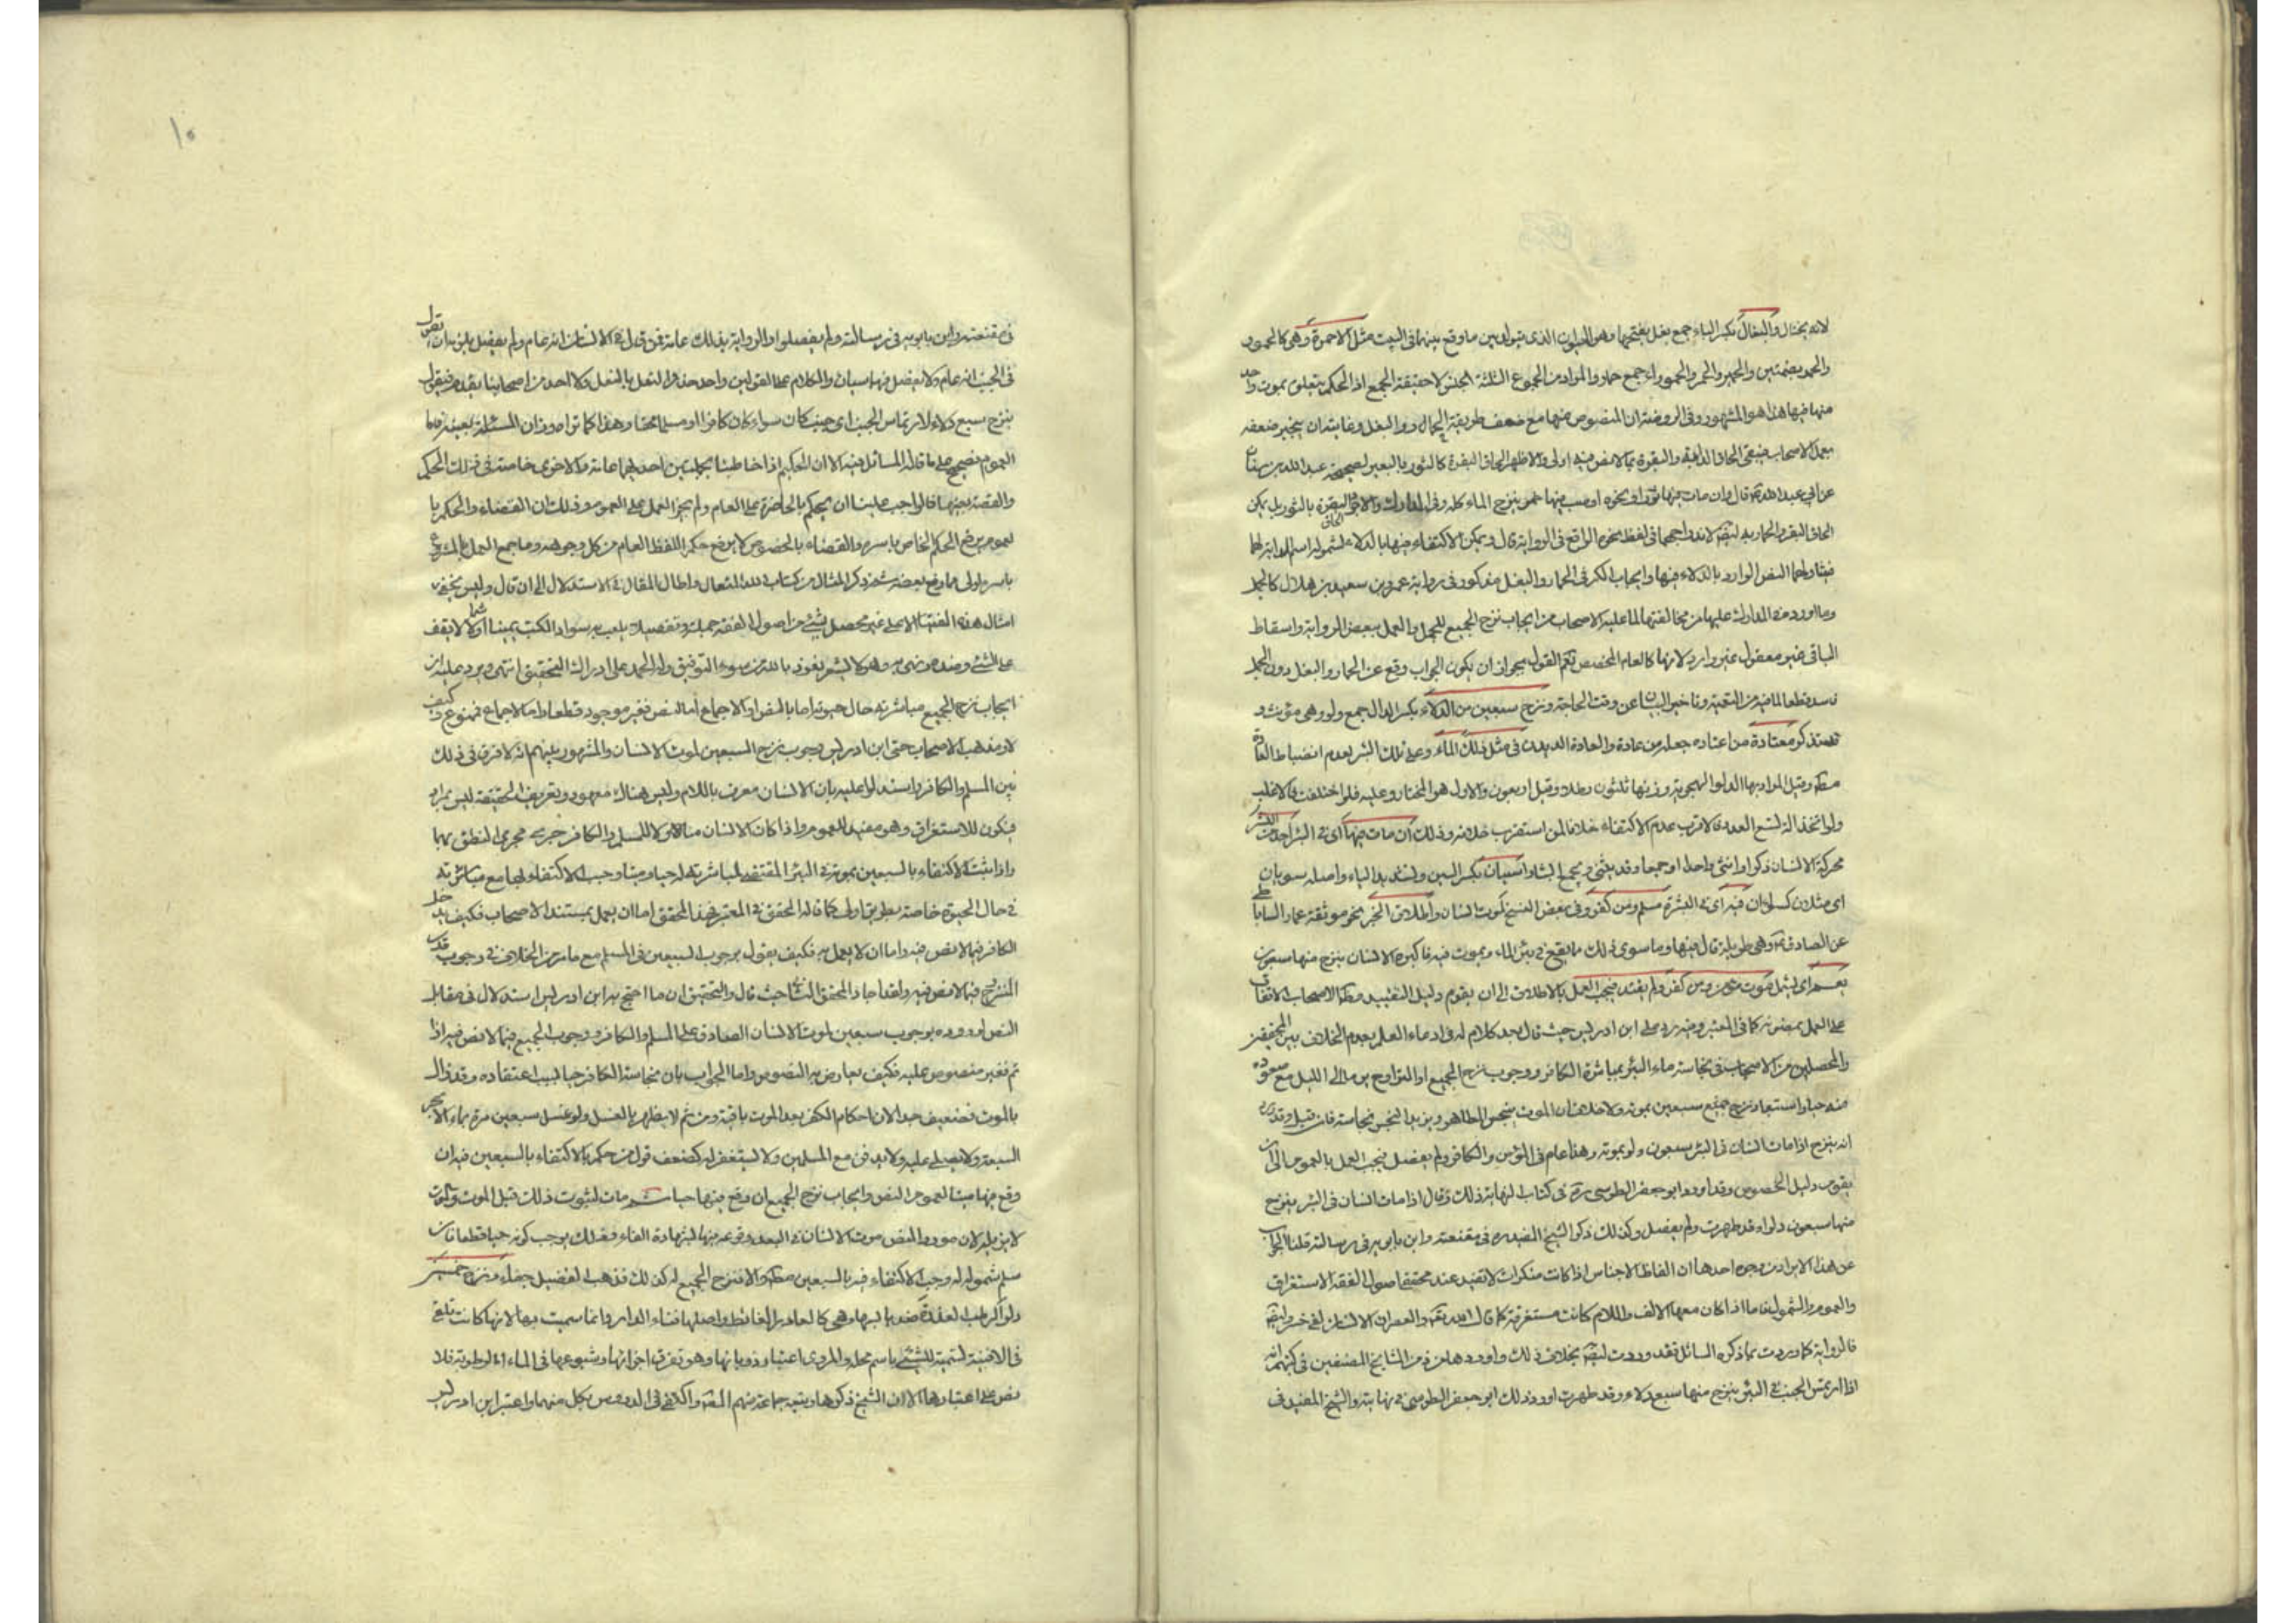 لانه يختال والبغال بكسر الباء جمع بغل بفتحها وهو الحيوان الذي يتولد بين ما وقع بينهما في البيت مثل الاحمرة وهي كالحمور
والحمر بضمتين والحمير والحمر والحموراء جمع حمار والمراد من الجموع الثلثة الجنس لا حقيقة الجمع اذ الحكم يتعلق بموت واحد
منها فيها هذا هو المشهور وفي الروضة ان المنصوص منها مع ضعف طريقه الجمال دون البغل وغايته ان ينجبر ضعفه
بعمل الاصحاب فيبقى الحاق الدابة والبقرة بما لا نص فيه اولى والاظهر الحاق البقرة كالثور بالبعير لصحيحة عبد الله بن سنان
عن ابي عبد الله قال وان مات فيها ثور او نحوه او صب فيها خمر ينزح الماء كله وفي المدارك البقرة بالثور بل يمكن
الحاق البقر والحمار به لاندراجهما في لفظ نحوه الواقع في الرواية قال ويمكن الاكتفاء فيها بالدلاء لشمول اسم الدابة لها
فيتناولهما النص الوارد بالدلاء فيها وايجاب الكر في الحمار والبغل مذكور في رواية عمرو بن سعيد بن هلال كالجمل
وما اورد في المدارك عليها من مخالفتها لما عليه الاصحاب من ايجاب نزح الجميع للجمل والعمل ببعض الرواية واسقاط
الباقي غير معقول غير وارد لانها كالعام المخصص نعم القول بجواز ان يكون الجواب وقع عن الحمار والبغل دون الجمل
فاسد قطعا لما فيه من التعمية وتاخير البيان عن وقت الحاجة ونزح سبعين من الدلاء بكسر الدال جمع دلو وهي مؤنث و
قد تذكر معتادة من اعتاده جعله من عادة والعادة الديدن في مثل ذلك الماء وعلى تلك البئر لعدم انضباط العادة
وقيل المراد بها الدلو الهجرية وزنها ثلثون رطلا وقيل اربعون والاول هو المختار وعليه فلو اختلفت فالاغلب
ولو اتخذ الة لتسع العدد فالاقرب عدم الاكتفاء خلافا لمن استقرب خلافه وذلك ان مات فيها اي في البئر احد من البشر
محركة الانسان ذكرا او انثى واحدا او جمعا وقد يثنى ويجمع ابشارا سيان بكسر السين وتشديد الياء واصله سويان
اي مثلان كسواءان فيه اي في البشرة مسلم ومن كفر وفي بعض النسخ كموت انسان واطلاق الخبر نحو موثقة عمار الساباطي
عن الصادق وهي طويلة قال فيها وما سوى ذلك مما يقع في بئر الماء ويموت فيه فاكبره الانسان ينزح منها سبعون
يعم اي ليشمل موت مؤمن ومن كفر ولم يقيد فيجب العمل بالاطلاق الى ان يقوم دليل التقييد الاصحاب الاتفاق
على العمل بمضمونه كما في المعتبر وفيه رد على ابن ادريس حيث قال بعد كلام له في ادعاء العلم بعدم الخلاف بين المحققين
والمحصلين من الاصحاب في نجاسة ماء البئر بمباشرة الكافر ووجوب نزح الجميع او التراوح يوما الى الليل مع صعوده
منه حيا واستبعاد نزح جميع سبعين بموته ولا خلاف ان الموت ينجس الطاهر ويزيد النجس نجاسة فان قيل وقد
انه ينزح اذا مات انسان في البئر سبعون دلوا بموته وهذا عام في المؤمن والكافر ولم يفصل فيجب العمل بالعموم الى ان
يقوم دليل الخصوص وقد اورد ابو جعفر الطوسي ره في كتاب النهاية ذلك وقال اذا مات انسان في البئر ينزح
منها سبعون دلوا وقد طهرت ولم يفصل وكذلك ذكر الشيخ المفيد ره في مقنعته وابن بابويه في رسالته قلنا الجواب
عن هذا الايراد من وجوه احدها ان الفاظ الاجناس اذا كانت منكرات لا تفيد عند محققي اصول الفقه الاستغراق
والعموم والشمول فاما اذا كان معها الالف واللام كانت مستغرقة كما قال الله تعالى والعصر ان الانسان لفي خسر
فالرواية كما وردت بما ذكره السائل فقد وردت بخلاف ذلك واوردها من المشايخ المصنفين في كتبهم انه
اذا ارتمس الجنب في البئر ينزح منها سبع دلاء وقد طهرت اورد ذلك ابو جعفر الطوسي في نهايته والشيخ المفيد في
١٠
في مقنعته وابن بابويه في رسالته ولم يفصلوا والرواية بذلك عامة فمن قال في الانسان انه عام ولم يفصل يلزمه ان يقول
في الجنب انه عام ولا يفصل فهما سيان والكلام على القولين واحد حذو النعل بالنعل ولا احد من اصحابنا يقدم فيقول
ينزح سبع دلاء لارتماس الجنب اي جنب كان سواء كان كافرا او مسلما محقا وهذا كما تراه وزان المسئلة بعينه فاما
العموم فصحيح على ما قاله السائل فيه الا ان الحكيم اذا خاطبنا بجملتين احديهما عامة والاخرى خاصة في ذلك الحكم
والقصة بعينها فالواجب علينا ان يحكم بالخاصة على العام ولم يجز العمل على العموم وذلك ان القضاء والحكم با
لعموم يرفع الحكم الخاص باسره والقضاء بالخصوص لا يرفع حكم اللفظ العام من كل وجوهه وما جمع العمل بالمشروع
باسره اولى مما رفع بعضه ثم ذكر المثال من كتاب الله المتعال واطال المقال في الاستدلال الى ان قال وليس يخفى
امثال هذه الفتيا الا على غير محصل لشيء من اصول الفقه جملة وتفصيلا يلعب به سواد الكتب يمينا وشمالا لا يقف
على الشيء وضده ويفتي به وهو لا يشعر نعوذ بالله من سوء التوفيق وله الحمد على ادراك التحقيق انتهى ويرد عليه ان
ايجاب نزح الجميع مباشرته حال حيوته اما بالنص او الاجماع اما النص فغير موجود قطعا واما الاجماع فممنوع كيف
لا ومذهب الاصحاب حتى ابن ادريس وجوب نزح السبعين لموت الانسان والمشهور بينهم انه لا فرق في ذلك
بين المسلم والكافر واستدلوا عليه بان الانسان معرف باللام وليس هناك معهود وتعريف الحقيقة ليس بمراد
فيكون للاستغراق وهو مفيد للعموم واذا كان الانسان متناولا للمسلم والكافر جرى مجرى النطق بهما
واذا ثبت الاكتفاء بالسبعين بموته في البئر المقتضي لمباشرته له حيا وميتا وجب الاكتفاء بها مع مباشرته
في حال الحيوة خاصة بطريق اولى كما قاله المحقق في المعتبر فهذا المحقق اما ان يعمل بمستند الاصحاب فكيف يدخل
الكافر فيما لا نص فيه واما ان لا يعمل به فكيف يقول بوجوب السبعين في المسلم مع ما مر من الخلاف في وجوب قدر
المنزوح فيما لا نص فيه ولقد اجاد المحقق الثاني حيث قال والتحقيق ان ما احتج به ابن ادريس استدلال في مقابلة
النص لوروده بوجوب سبعين لموت الانسان الصادق على المسلم والكافر ووجوب الجميع فيما لا نص فيه اذا
تم فغير منصوص عليه فكيف يعارض به النصوص واما الجواب بان نجاسة الكافر حيا لسبب اعتقاده وقد زال
بالموت فضعيف جدا لان احكام الكفر بعد الموت باقية ومن ثم لا يطهر بالغسل ولو غسل سبعين مرة بماء الابحر
السبعة ولا يصلى عليه ولا يدفن مع المسلمين ولا يستغفر له كضعف قول من حكم بالاكتفاء بالسبعين فيه ان
وقع فيها ميتا لعموم النص وايجاب نزح الجميع ان وقع فيها حيا ثم مات لثبوت ذلك قبل الموت والموت
لا يزيله لان مورد النص موت الانسان في البئر بعد وقوعه فيها لشهادة الفاء وذلك يوجب كونه حيا قطعا فان
سلم شموله له وجب الاكتفاء فيه بالسبعين والا فنزح الجميع له كذلك فذهب التفصيل جفاء ونزح خمسين
دلوا لرطب العذرة ضد يابسها وهي كالعاذر الغائط واصلها فناء الدار وانما سميت بها لانها كانت تلقى
في الافنية لتسمية الشيء باسم محله والمروي اعتبار ذوبانها وهو تفرق اجزائها وشيوعها في الماء اما الرطوبة فلا
نص على اعتبارها الا ان الشيخ ذكرها وتبعه جماعة منهم واكتفى في الدروس بكل منهما واعتبر ابن ادريس